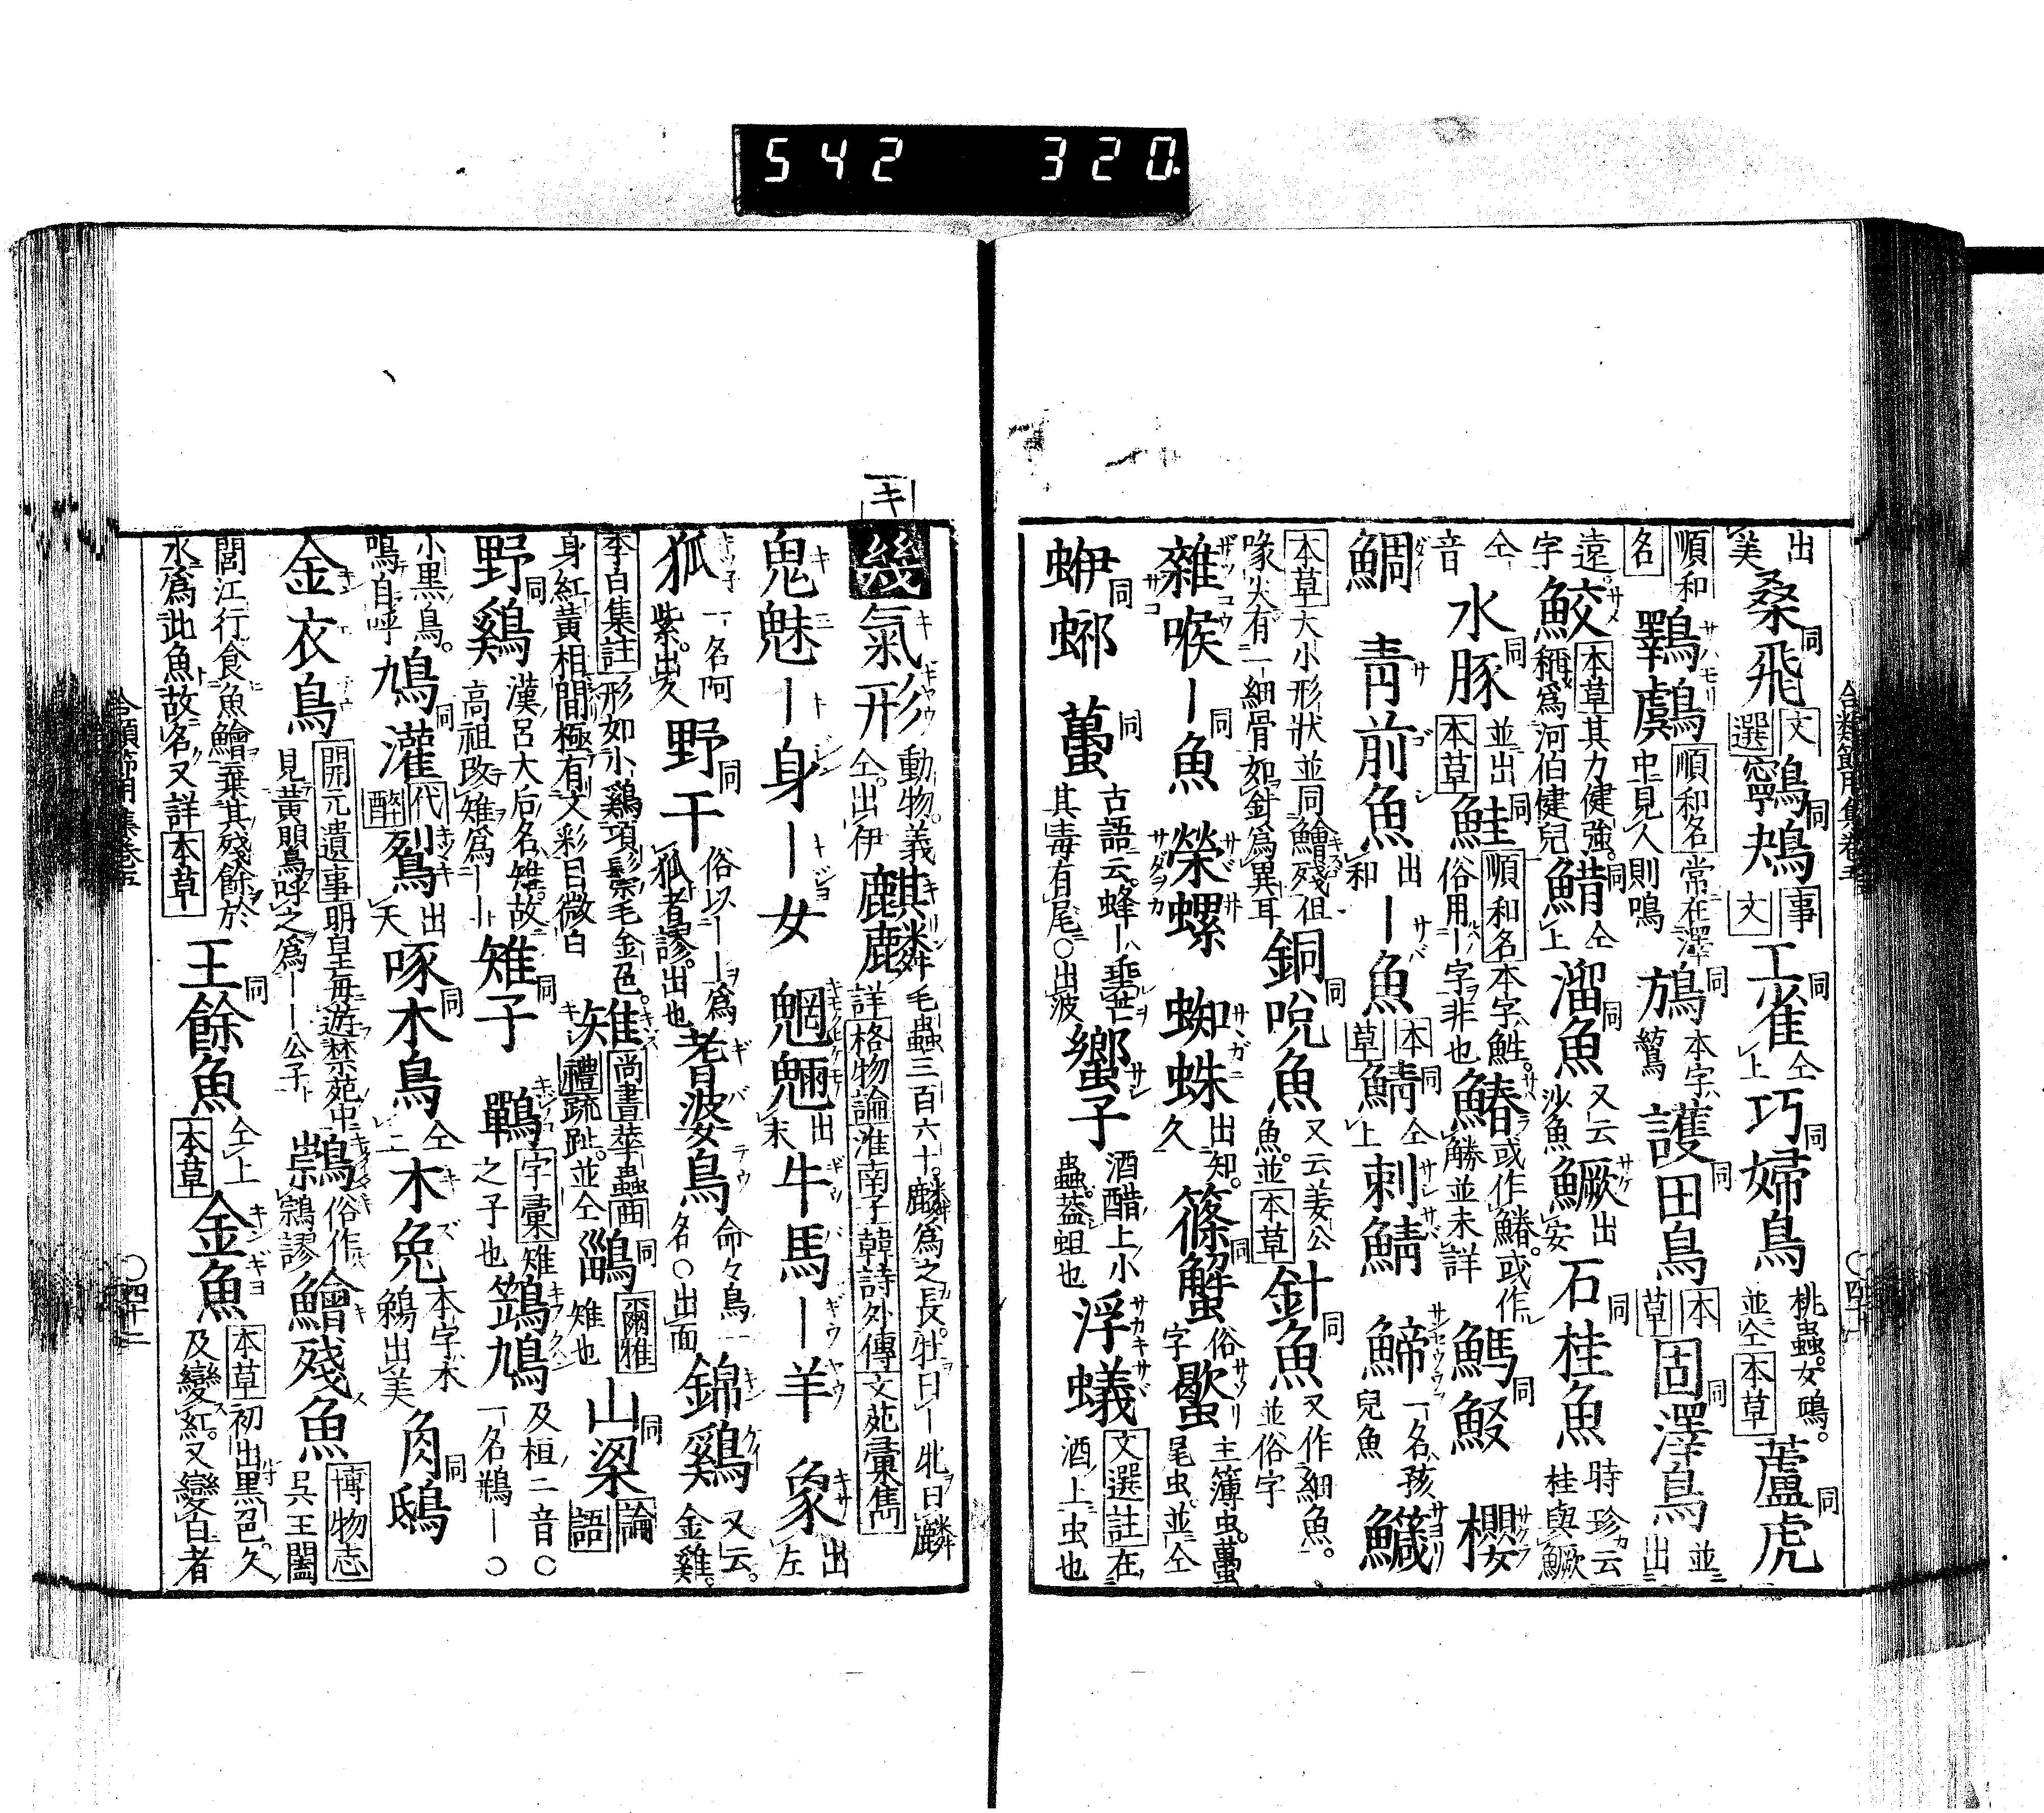 542 320.
合類節用集卷五
○四十一
出美桑飛同文選鸋鴂同事文工雀同仝上巧婦鳥同桃蟲。女鴟。並仝本草蘆虎同
順和名鸅鸆サハモリ順和名常在澤中見人則鳴鳭同本字鶭護田鳥同本草固澤鳥同並出
遠。字鮫サメ本草其力健強。稱爲河伯健兒䱜同仝上溜魚同又云沙魚鱖サケ出安石桂魚同時珍云桂與鱖
仝音水豚同並出本草鮭同順和名本字鮏。俗用ー字非也鰆サハラ或作鰆。或作䲙並未詳䲣鮫同櫻サクラ
鯛ダイ青前魚サゴシ出和ー魚サバ本草鯖同仝上刺鯖サシサバ鯑サンセウウヲ一名孩兒魚鱵サヨリ
本草大小形狀並同鱠殘但喙尖有一細骨如針爲異耳銅哾魚同又云姜公魚。並本草針魚同又作細魚。並俗字
雜喉ザツコウザコー魚同榮螺サザヰ蜘蛛サヽガニ出知。久篠蟹同俗字蠍サソリ主簿虫。蠆尾虫。並仝
蛜𧋠同蠆同古語云。蜂ー垂芒其毒有尾。○出波蠁子サシ酒醋上小蟲。蓋蛆也浮蟻サカキサバ文選註在酒上虫也
キ
幾氣形キギヤウ動物。義仝。出伊麒麟キリン毛蟲三百六十。麟爲之長。牡曰ー牝曰麟詳格物論淮南子韓詩外傳文苑彙雋
鬼魅キニー身キジンー女キジョ魍魎出末牛馬ギウバー羊ギウヤウ象キサ出左
狐キツネ一名阿紫。出久野干同俗以ーー爲狐者謬。出也耆婆鳥ギバテウ命々鳥一名。○出面錦鷄キンケイ又云。金雞。
李白集註形如小鷄項鬃毛金色。身紅黃相間極有文彩目微白雉キジ尚書華蟲禮疏趾。並仝鶅同爾雅雉也山梁同論語
野鷄同漢呂大后名雉。故高祖改雉爲ーー雉子同鷣字彙雉之子也鵼鳩及桓二音○一名鵜ー○
小黑鳥。鳴自呼鳩灌同代醉鴷キツツキ出天啄木鳥同仝二木兔キズ本字木鵵出美角鴟同
金衣鳥キンエテウ開元遺事明皇每遊禁苑中見黃鸎呼之爲ーー公子鷦俗作鷯謬鱠殘魚キス博物志吳王闔
閭江行食魚鱠棄其殘餘於水爲此魚故名又詳本草王餘魚同仝上本草金魚キンギョ本草初出黑色。久及變紅。又變白者
合類節用集卷五
○四十二